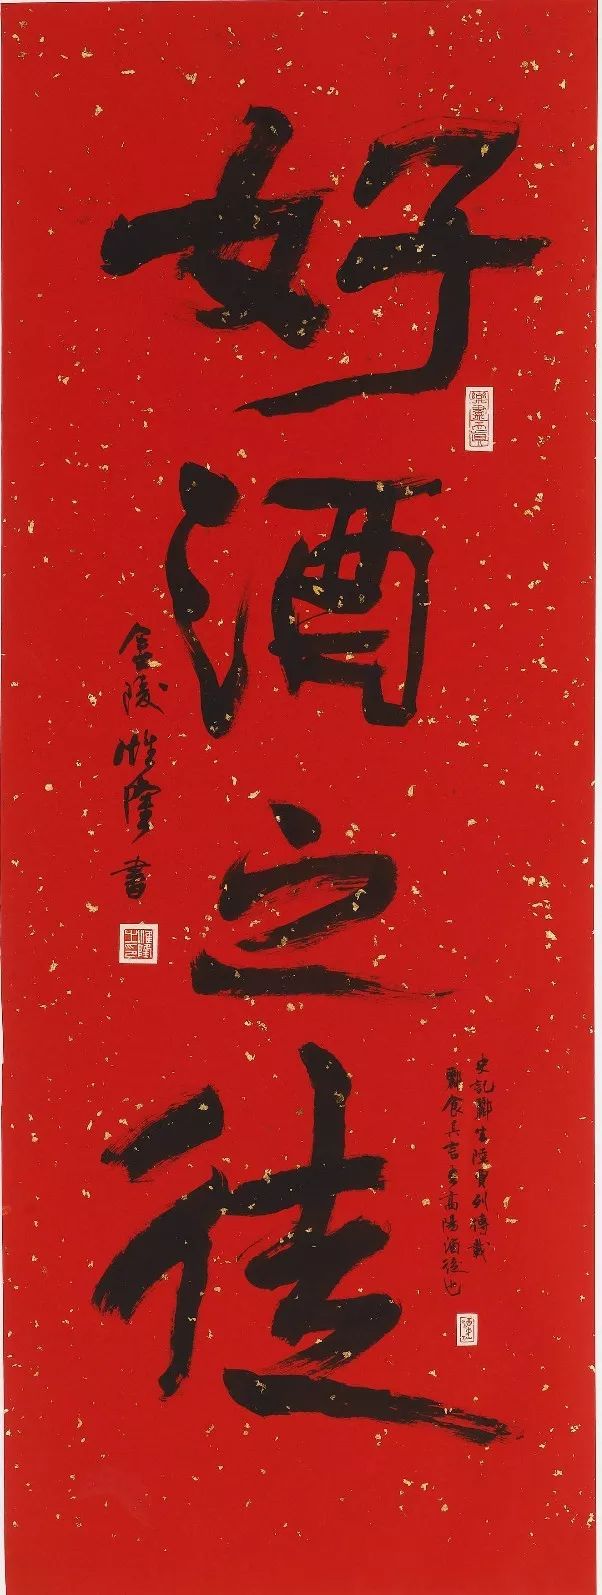 好酒之徒
史記酈生陸賈列傳載
酈食其言吾高陽酒徒也
金陵惟隆書